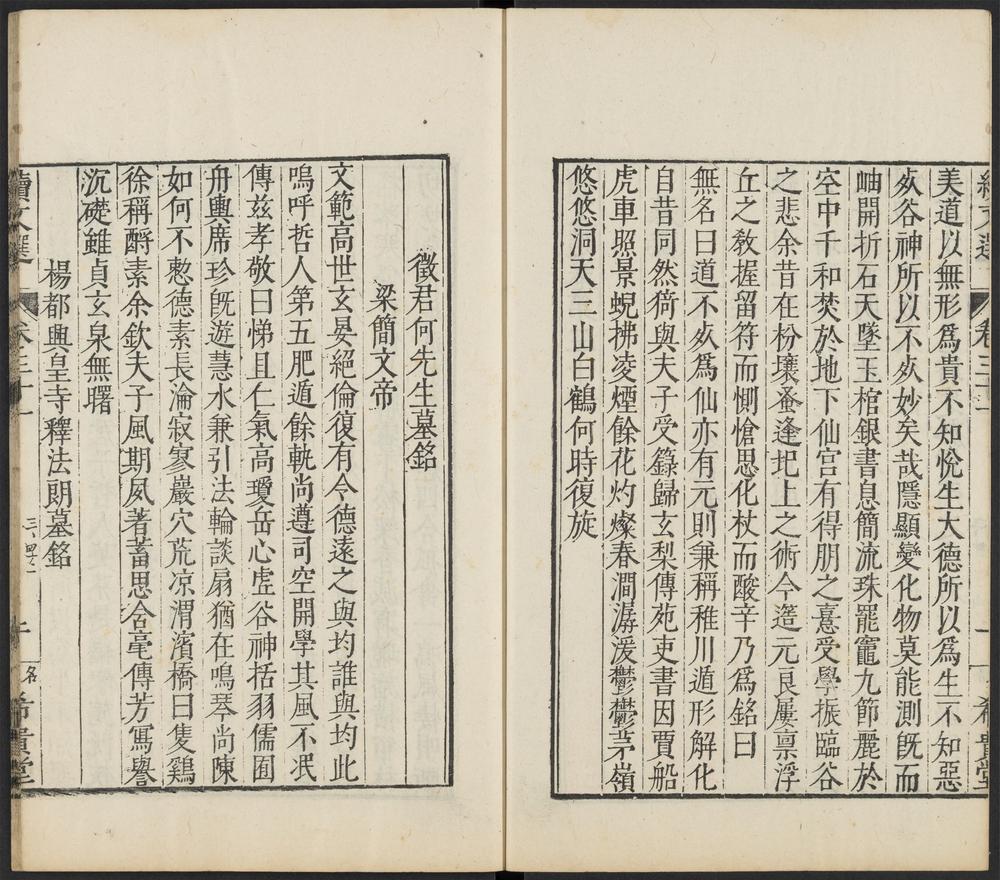 續文選 卷三十一 希貴堂
美道以無形爲貴不知悅生大德所以爲生不知惡
夊谷神所以不夊妙矣哉隱顯變化物莫能測旣而
岫開折石天墜玉棺銀書息簡流珠罷竈九節麗於
空中千和焚於地下仙宮有得朋之憙受學振臨谷
之悲余昔在枌壤蚤逢圯上之術今簉元良屢禀浮
丘之敎握留符而惻愴思化杖而酸辛乃爲銘曰
無名曰道不夊爲仙亦有元則兼稱稚川遁形解化
自昔同然猗與夫子受籙歸玄梨傳苑吏書因賈船
虎車照景蜺拂凌煙餘花灼爍春澗潺湲鬱鬱茅嶺
悠悠洞天三山白鶴何時復旋
徵君何先生墓銘
梁簡文帝
文範高世玄晏絕倫復有令德遠之與均誰與均此
嗚呼哲人第五肥遁餘軌尚遵司空開學其風不泯
傳兹孝敬曰悌且仁氣高瓊岳心虛谷神括羽儒囿
舟輿席珍旣遊慧水兼引法輪談扇猶在鳴琴尚陳
如何不憗德素長淪寂寥巖穴荒凉渭濱橋曰隻鷄
徐稱酹素余欽夫子風期夙著蓄思含毫傳芳寫譽
沉礎雖貞玄泉無曙
楊都興皇寺釋法朗墓銘
續文選 卷三十一 希貴堂